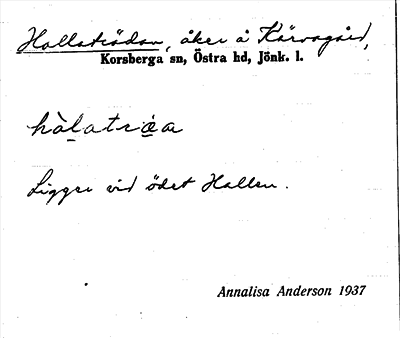 Hallaträdan, åker å Kärvagård,
Korsberga sn, Östra hd, Jönk. l.
hàlatrǽa
Ligger vid ödet Hallen.
Annalisa Anderson 1937